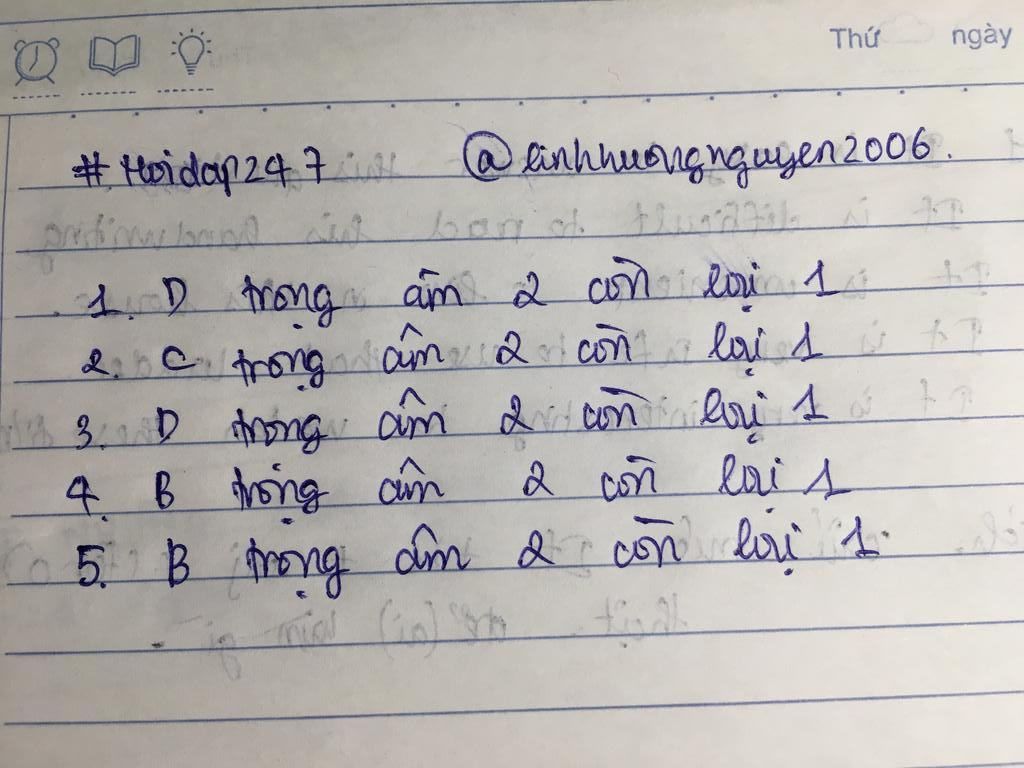 Thứ ngày
#Hoidap247 @linhhuongnguyen2006.
1. D trọng âm 2 còn lại 1
2. C trọng âm 2 còn lại 1
3. D trọng âm 2 còn lại 1
4. B trọng âm 2 còn lại 1
5. B trọng âm 2 còn lại 1